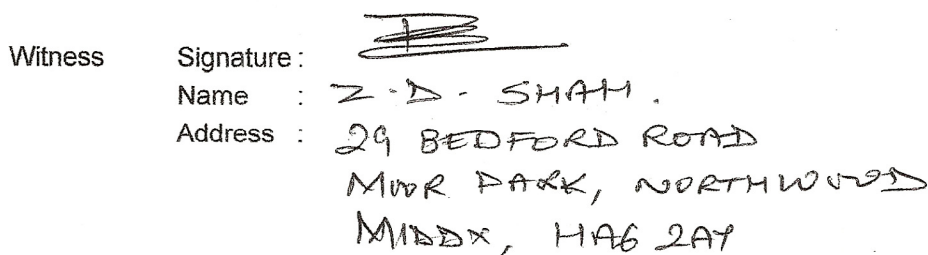 Witness Signature :
Name : Z.D. SHAH.
Address : 29 BEDFORD ROAD
MOOR PARK, NORTHWOOD
MIDDX, HA6 2AY